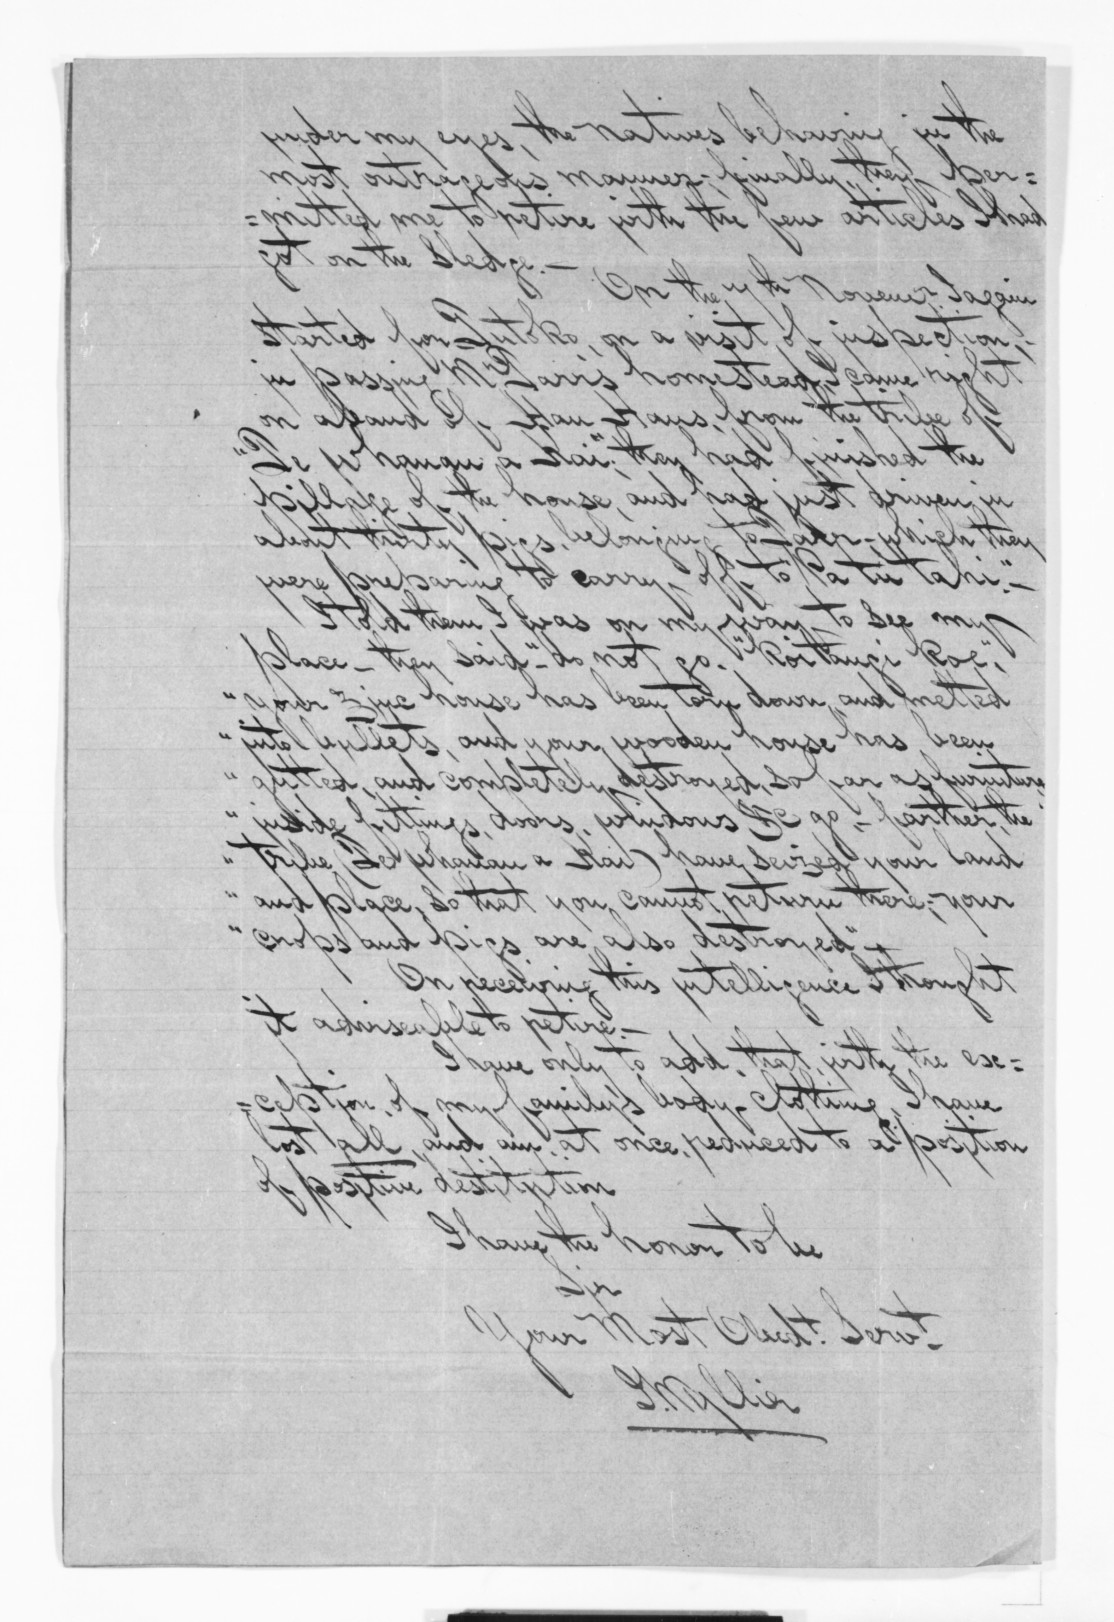 under my eyes, the natives behaving in the
most outrageous manner; finally, they per=
=mitted me to retire with the few articles I had
got on the sledge. —
On the 7th Novemr I again
started for Tutoko, on a visit of inspection;
in passing Mr homestead, I came right
on a band of Hau Haus, from the tribe of
"Te Whanau a Kai"; they had finished the
pillage of the house, and had just driven in
about thirty pigs, belonging to - which they
were preparing to carry off to "Patutahi". —
I told them I was on my way to see my
place - they said - "do not go. "
" your zinc house has been torn down, and melted
" into bullets, and your wooden house has been
" gutted, and completely destroyed, so far as furniture
" inside fittings, doors, windows &c go - farther, the
" tribe (Te Whanau a Kai) have seized your land
" and place, so that you cannot return there; your
" crops and pigs are also destroyed" —
On receiving this intelligence I thought
it adviseable to retire. —
I have only to add, that, with the ex=
=ception, of my family's body-clothing, I have
lost all, and am, at once, reduced to a position
of positive destitution
I have the honor to be
Sir
Your Most Obedt. Servt.